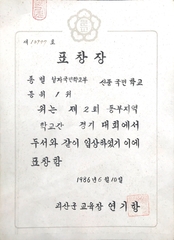 표창장
종별
국민학교
종위 1위
위는 제2회 동부지역
학교간 경기 대회에서
두서와 같이 입상하였기 이에
표창함
1986년 6월 10일
괴산군 교육장 연기항